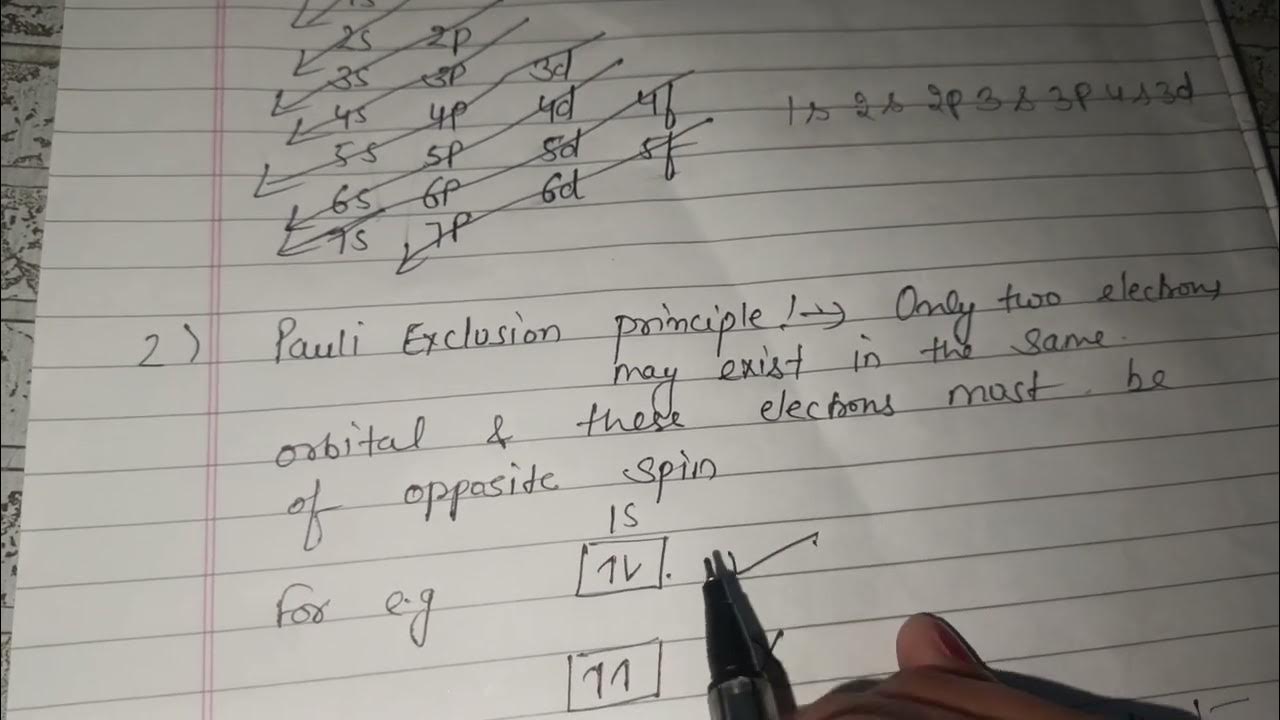 1s
2s 2p
3s 3p 3d
4s 4p 4d 4f
5s 5p 5d 5f
6s 6p 6d
7s 7p
1s 2s 2p 3s 3p 4s 3d
2) Pauli Exclusion principle:→ Only two electrons
may exist in the same
orbital & these electrons mast be
of opposite spin
1S
↑↓
For e.g
↑↑